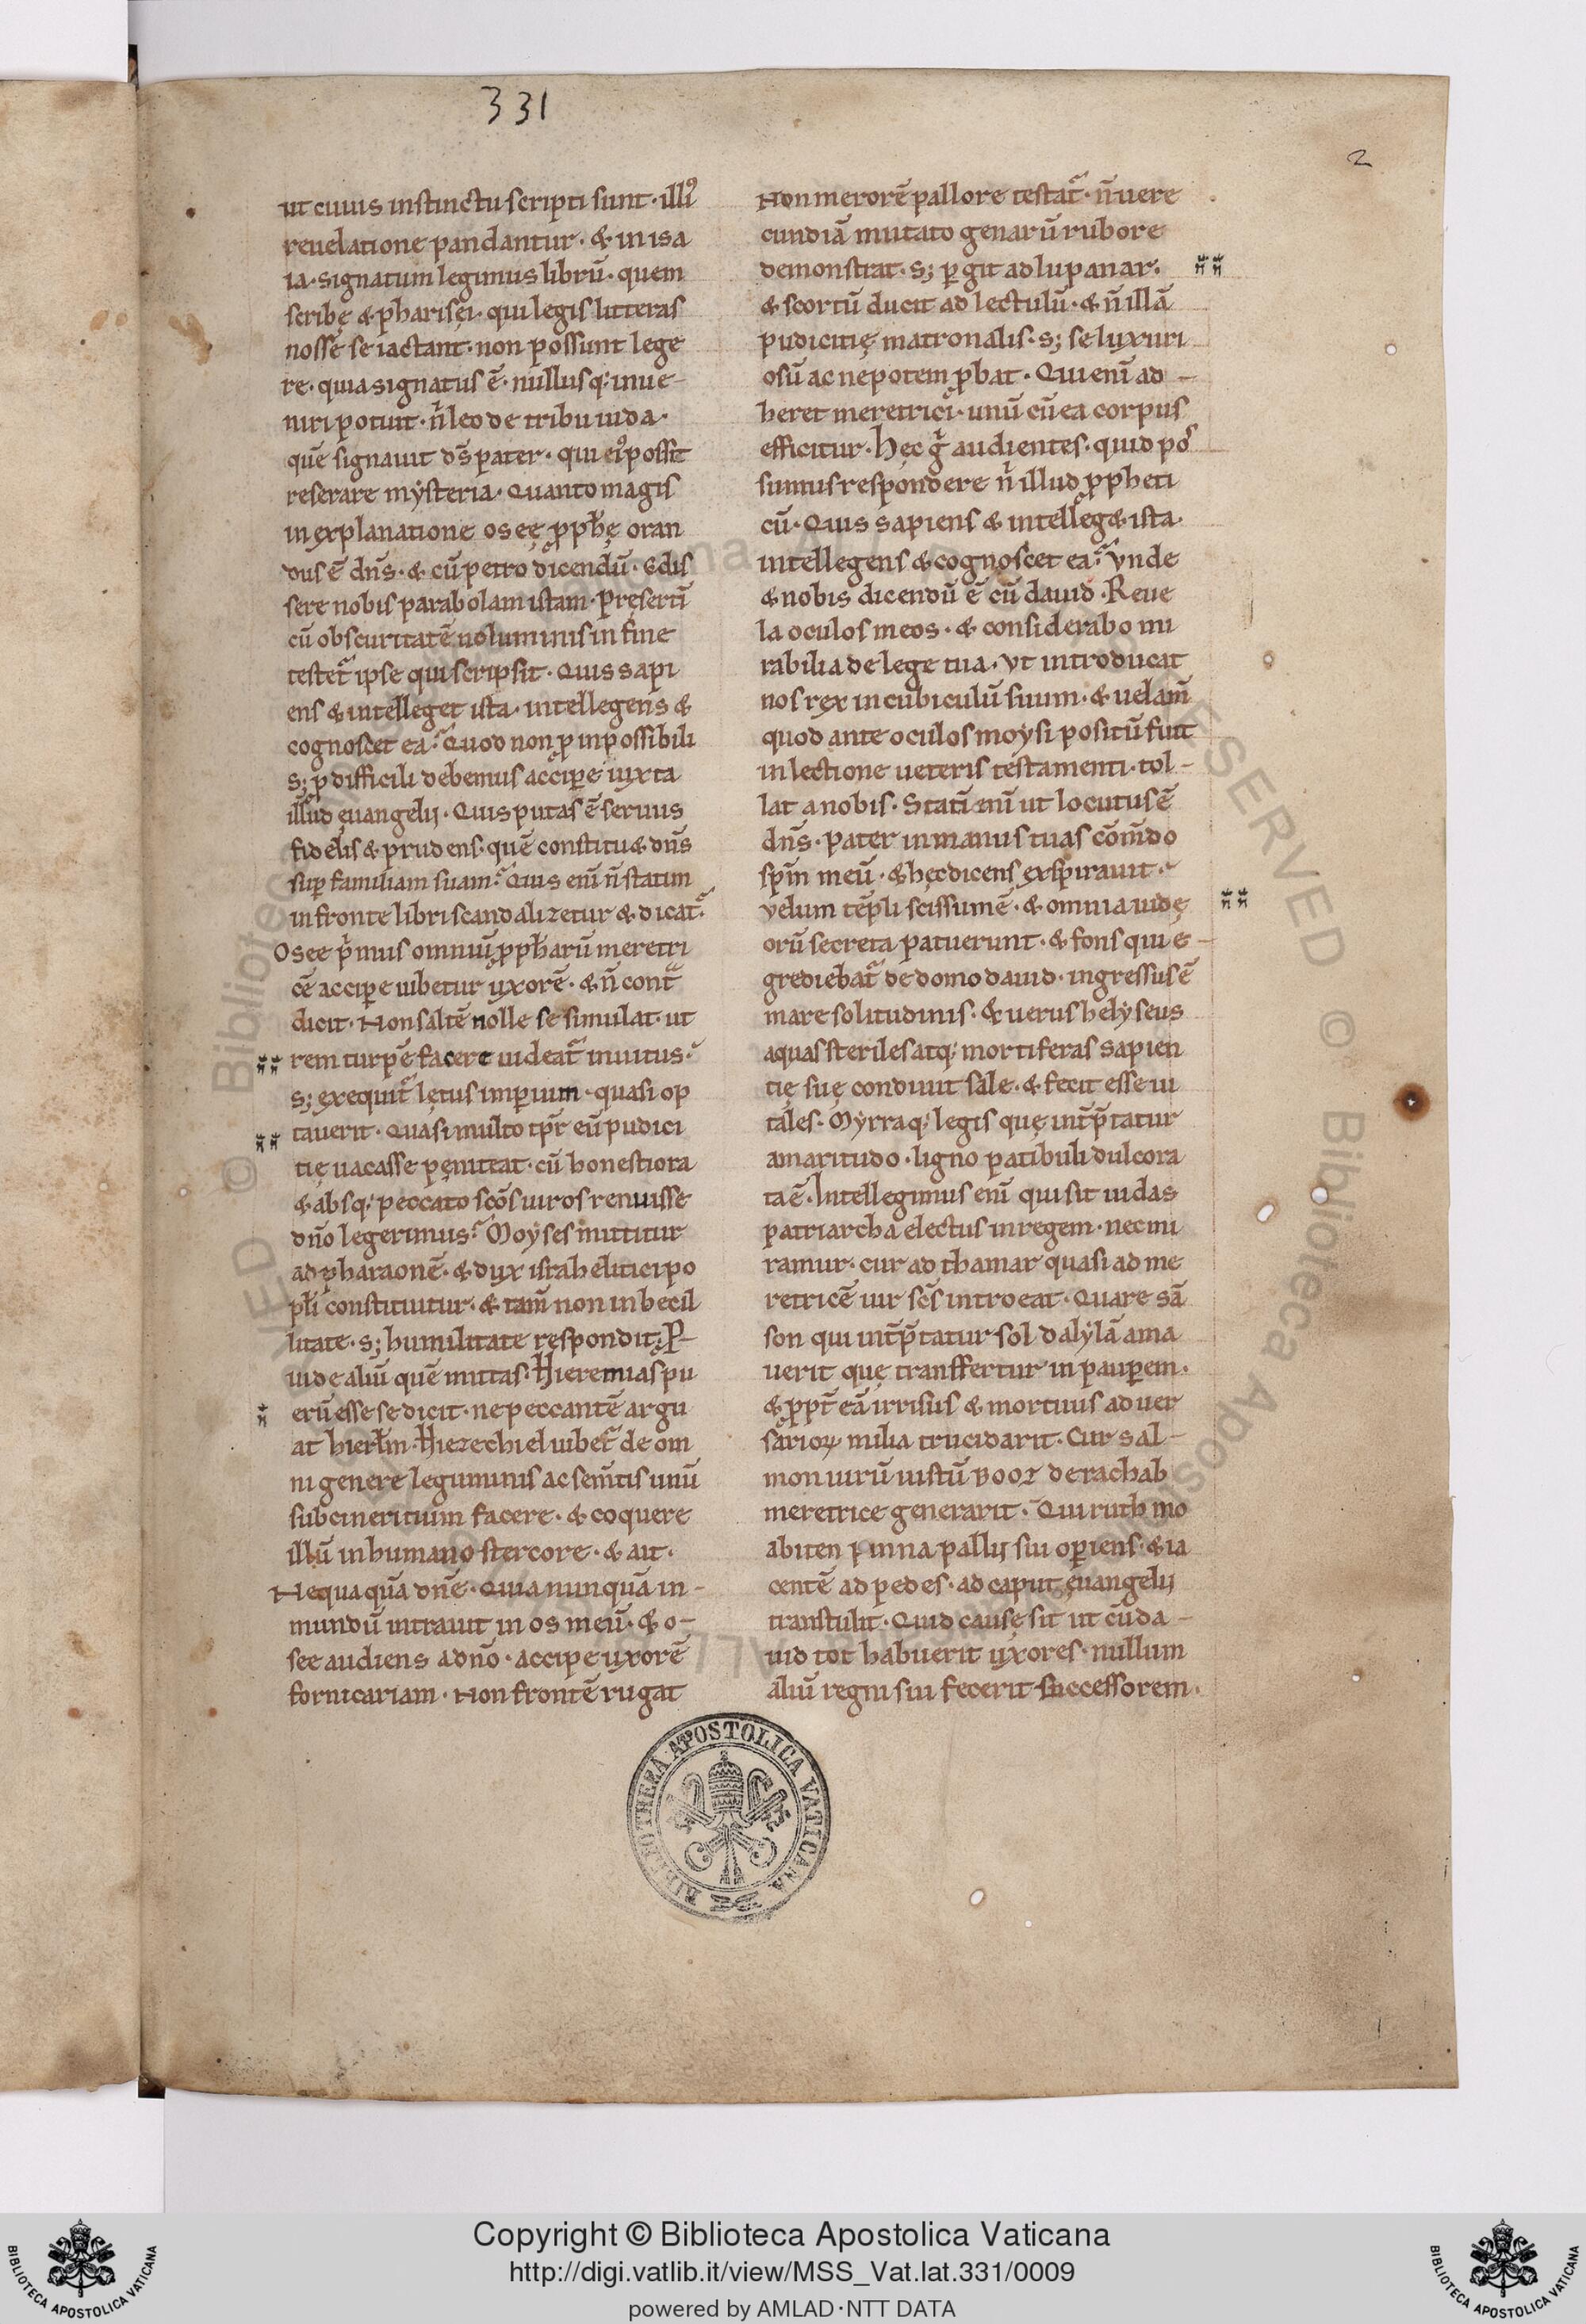 331
2
ut cuius instinctu scripti sunt · illi᷒
reuelatione pandantur · & in isa
ia · signatum legimus librū · quem
scribę & pharisęi · qui legis litteras
nosse se iactant · non possunt lege
re · quia signatus ē · nullusq; inue-
niri potuit · n̄ leo de tribu iuda ·
quē signauit d̄s pater · qui ei᷒ possit
reserare mẏsteria · Quanto magis
in explanatione oseę pph̄ę oran
dus ē dn̄s · & cū petro dicendū · Edis
sere nobis parabolam istam · Pręsertī
cū obscuritatē uoluminis in fine
testet᷒ ipse qui scripsit · Quis sapi
ens & intelleget ista · intellegens &
cognoscet ea? Quod non ꝓ inpossibili
s; ꝓ difficili debemus accipere iuxta
illud ęuangelij · Quis putas ē seruus
fidelis & prudens · quē constitu& dn̄s
suꝑ familiam suam? Quis enī n̄ statim
in fronte libri scandalizetur & dicat᷒
Osee p̄mus omniū ꝓph̄arū meretri
cē accipe iubetur uxorē · & n̄ contᷓ
dicit · Non saltē nolle se simulat · ut
rem turpē facere uideat᷒ inuitus ·
s; exequit᷒ lętus imperium · quasi op
tauerit · Quasi multo tp̄r eū pudici
tię uacasse pęniteat · cū honestiora
& absq; peccato sc̄os uiros renuisse
dn̄o legerimus? Moyses mittitur
ad pharaonē · & dux israhelitici po
pl̄i constituitur · & tam̄ non inbecil
litate · s; humilitate respondit; P-
uide aliū quē mittas · Hieremias pu
erū esse se dicit · ne peccantē argu
at hierlm̄ · Hiezechiel iubet᷒ de om
ni genere leguminis ac sem̄tis unū
subcineritium facere · & coquere
illū in humano stercore · & ait ·
Nequa quā dn̄e · Quia nunquā in-
mundū intrauit in os meū · & o-
see audiens a dn̄o · accipe uxorē
fornicariam · Non frontē rugat
Non merorē pallore testat᷒ · n̄ uere
cundiā mutato genarū rubore
demonstrat · s; ꝑgit ad lupanar ·
& scortū ducit ad lectulū · & n̄ illā
pudicitię matronalis · s; se luxuri
osū ac nepotem ꝓbat · Qui enī ad-
heret meretrici · unū cū ea corpus
efficitur · Hęc g̊ audientes · quid pos
sumus respondere n̄ illud ꝓpheti
cū · Quis sapiens & intelleg& ista
intellegens & cognoscet ea? Vnde
& nobis dicendū ē cū dauid · Reue
la oculos meos · & considerabo mi
rabilia de lege tua · Vt introducat
nos rex in cubiculū suum · & uelam̄
quod ante oculos moysi positū fuit
in lectione ueteris testamenti · tol-
lat a nobis · Statī enī ut locutus ē
dn̄s · pater in manus tuas cōm̄do
sp̄m meū · & hęc dicens exspirauit ·
velum tēpli scissum ē · & omnia iudę
orū secreta patuerunt · & fons qui e-
grediebat᷒ de domo dauid · ingressus ē
mare solitudinis · & uerus helyseus
aquas steriles atq; mortiferas sapien
tię suę condiuit sale · & fecit esse ui
tales · Myrraq; legis quę int̄p̄tatur
amaritudo · ligno patibuli dulcora
ta ē · Intellegimus enī qui sit iudas
patriarcha electus in regem · nec mi
ramur · cur ad thamar quasi ad me
retricē uir sc̄s introeat · Quare sā
son qui int̄p̄tatur sol dalẏlā ama
uerit quę transfertur in pauꝑem ·
& ꝓpt̄ eā irrisus & mortuus aduer
sarioꝝ milia trucidarit · Cur sal-
mon uirū iustū booz de rachab
meretrice generarit · Qui ruth mo
abiten pinna pallij sui operiens · & ia
centē ad pedes · ad caput ęuangelij
transtulit · Quid causę sit ut cū da-
uid tot habuerit uxores · nullum
aliū regni sui fecerit successorem ·
BIBLIOTHECA APOSTOLICA VATICANA
Copyright © Biblioteca Apostolica Vaticana
http://digi.vatlib.it/view/MSS_Vat.lat.331/0009
powered by AMLAD·NTT DATA
BIBLIOTECA APOSTOLICA VATICANA
BIBLIOTECA APOSTOLICA VATICANA